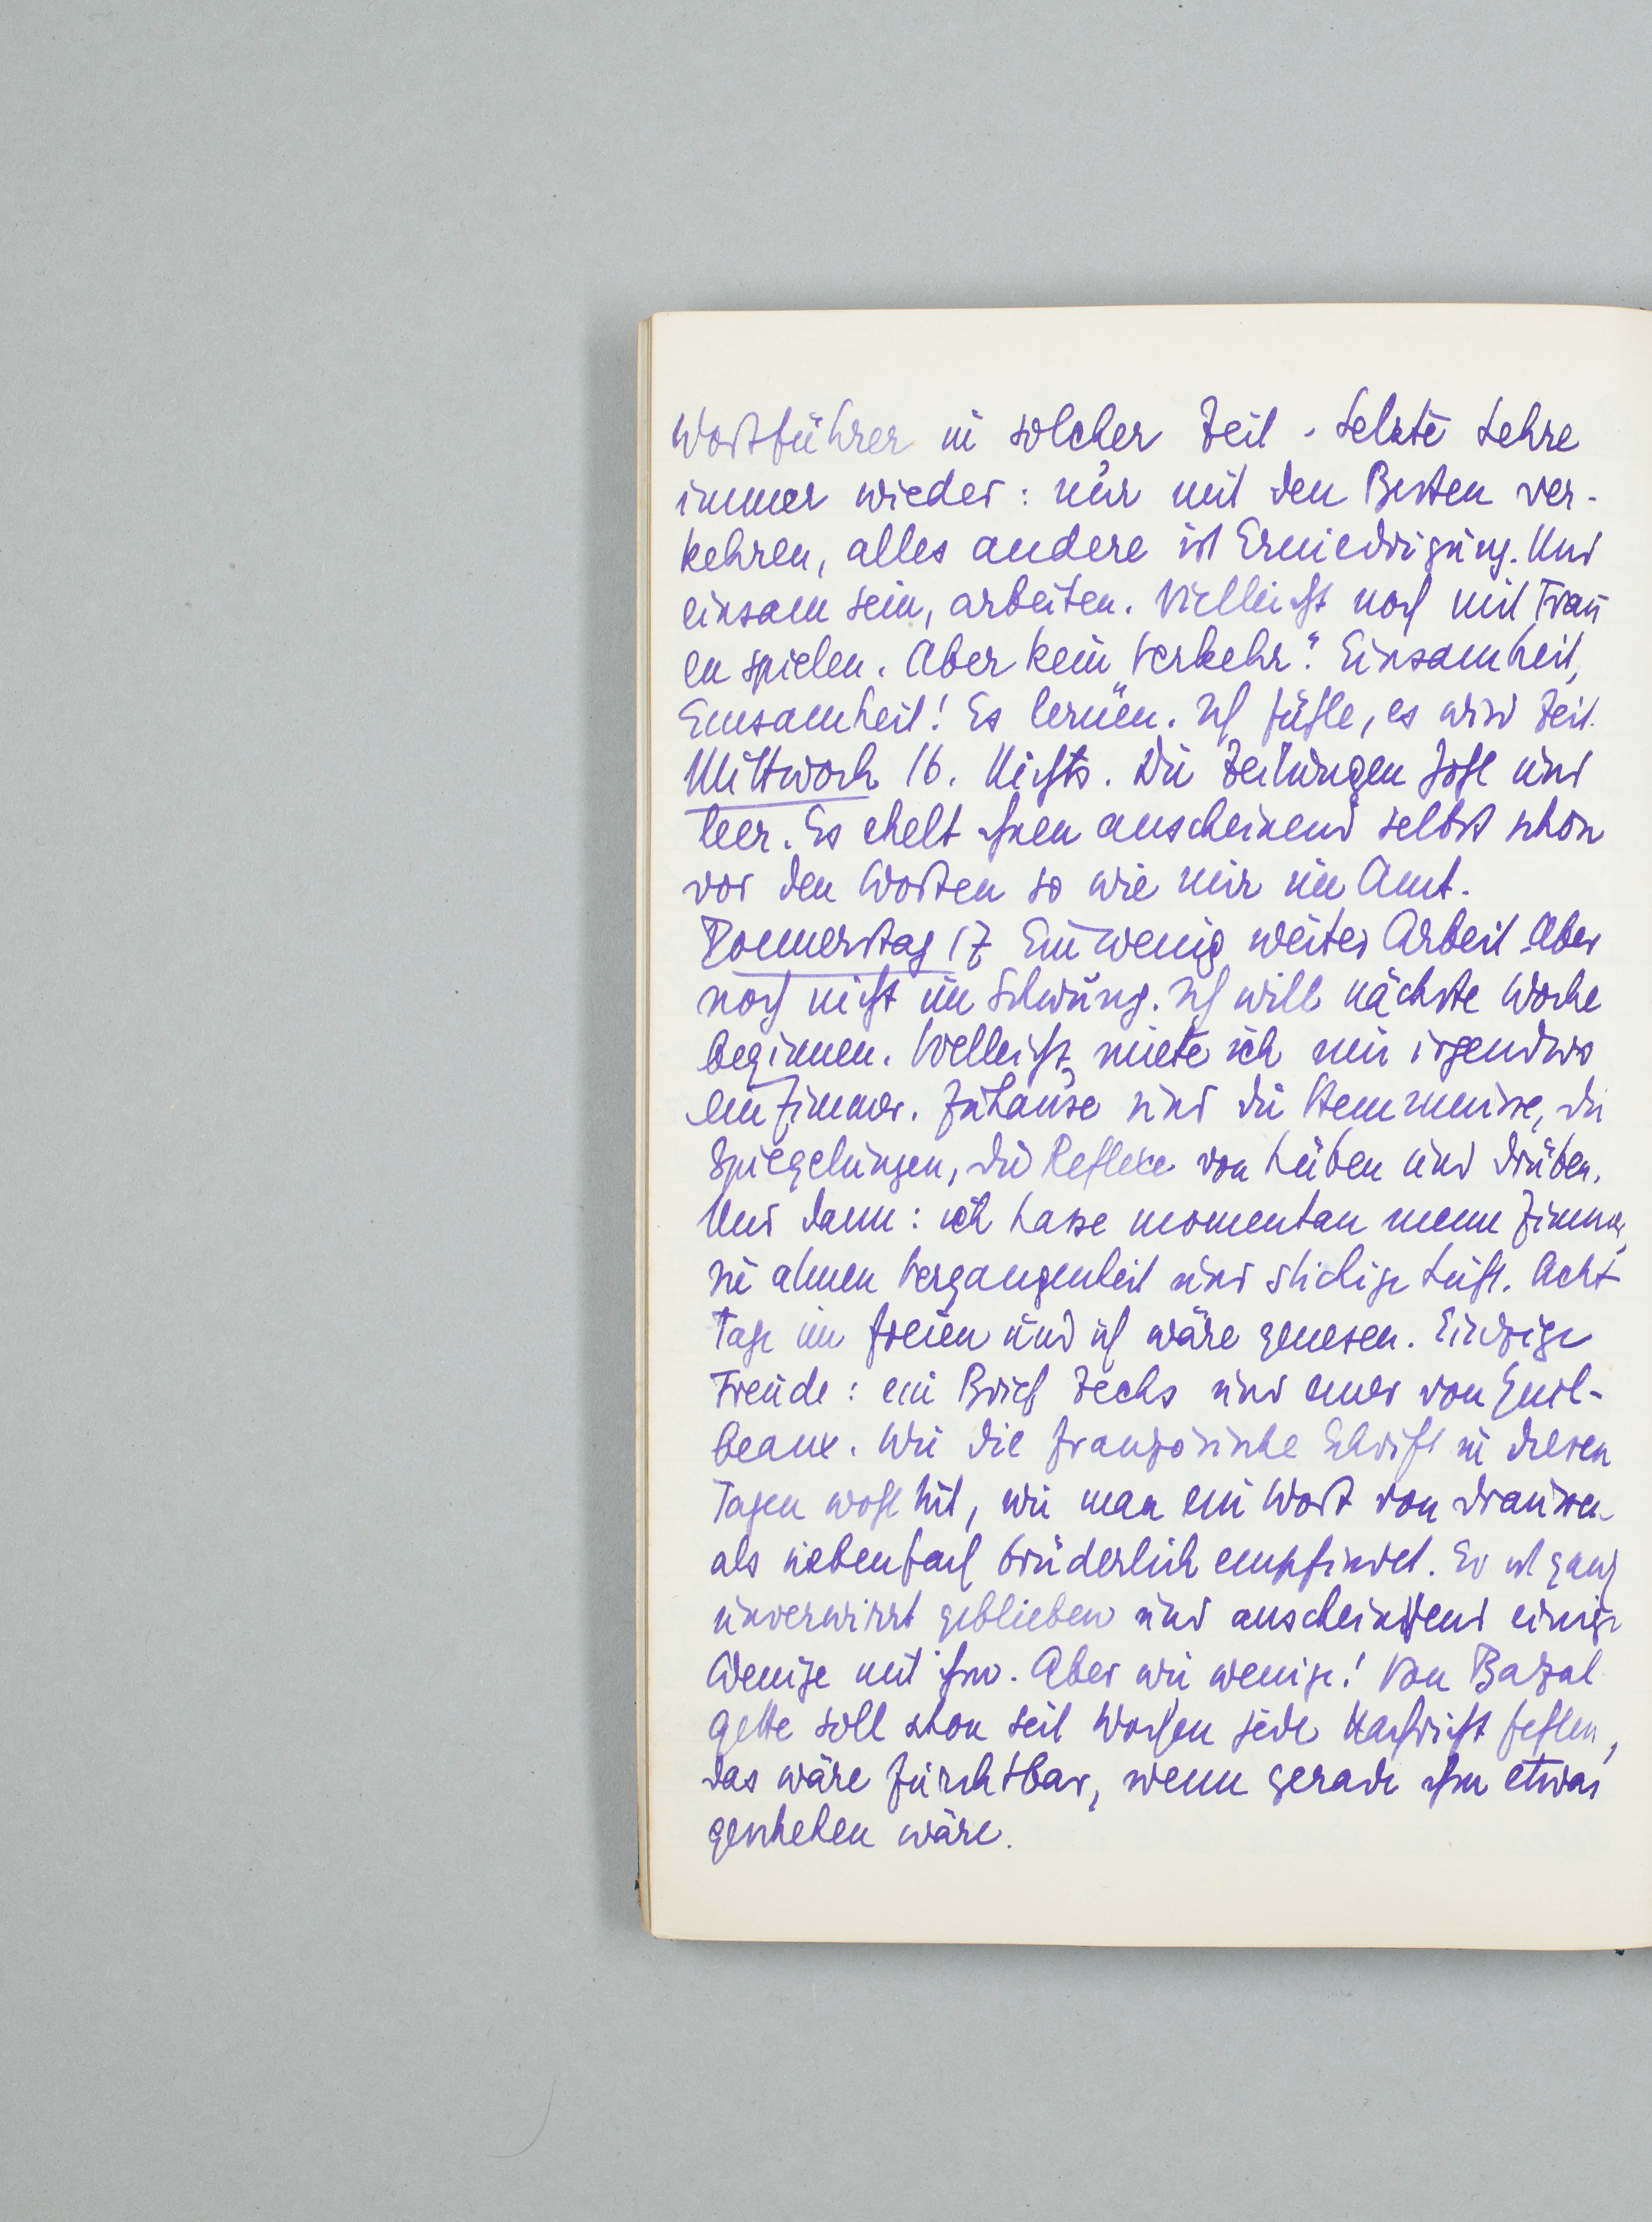 Wortführer in solcher Zeit. Letzte Lehre
immer wieder: nur mit den Besten ver-
kehren, alles andere ist Erniedrigung. Und
einsam sein, arbeiten. Vielleicht noch mit Frau
en spielen. Aber kein „Verkehr“. Einsamheit,
Einsamheit! Es lernen. Ich fühle, es wird Zeit.
Mittwoch 16. Nichts. Die Zeitungen hohl und
leer. Es ekelt ihnen anscheinend selbst schon
vor den Worten so wie mir im Amt.
Donnerstag 17 Ein wenig weiter Arbeit. Aber
noch nicht im Schwung. Ich will nächste Woche
beginnen. Vielleicht miete ich mir irgendwo
ein Zimmer. Zuhause sind die Hemmnisse, die
Spiegelungen, die Reflexe von hüben und drüben.
Und dann: ich hasse momentan meine Zimmer,
sie atmen Vergangenheit und stickige Luft. Acht
Tage im freien und ich wäre genesen. Einzige
Freude: ein Brief Zechs und einer von Guil-
beaux. Wie die französische Schrift in diesen
Tagen wohl tut, wie man ein Wort von draussen
als siebenfach brüderlich empfindet. Er ist ganz
unverwirrt geblieben und anscheinend einige
Wenige mit ihm. Aber wie wenige! Von Bazal
gette soll schon seit Wochen jede Nachricht fehlen,
das wäre furchtbar, wenn gerade ihm etwas
geschehen wäre.